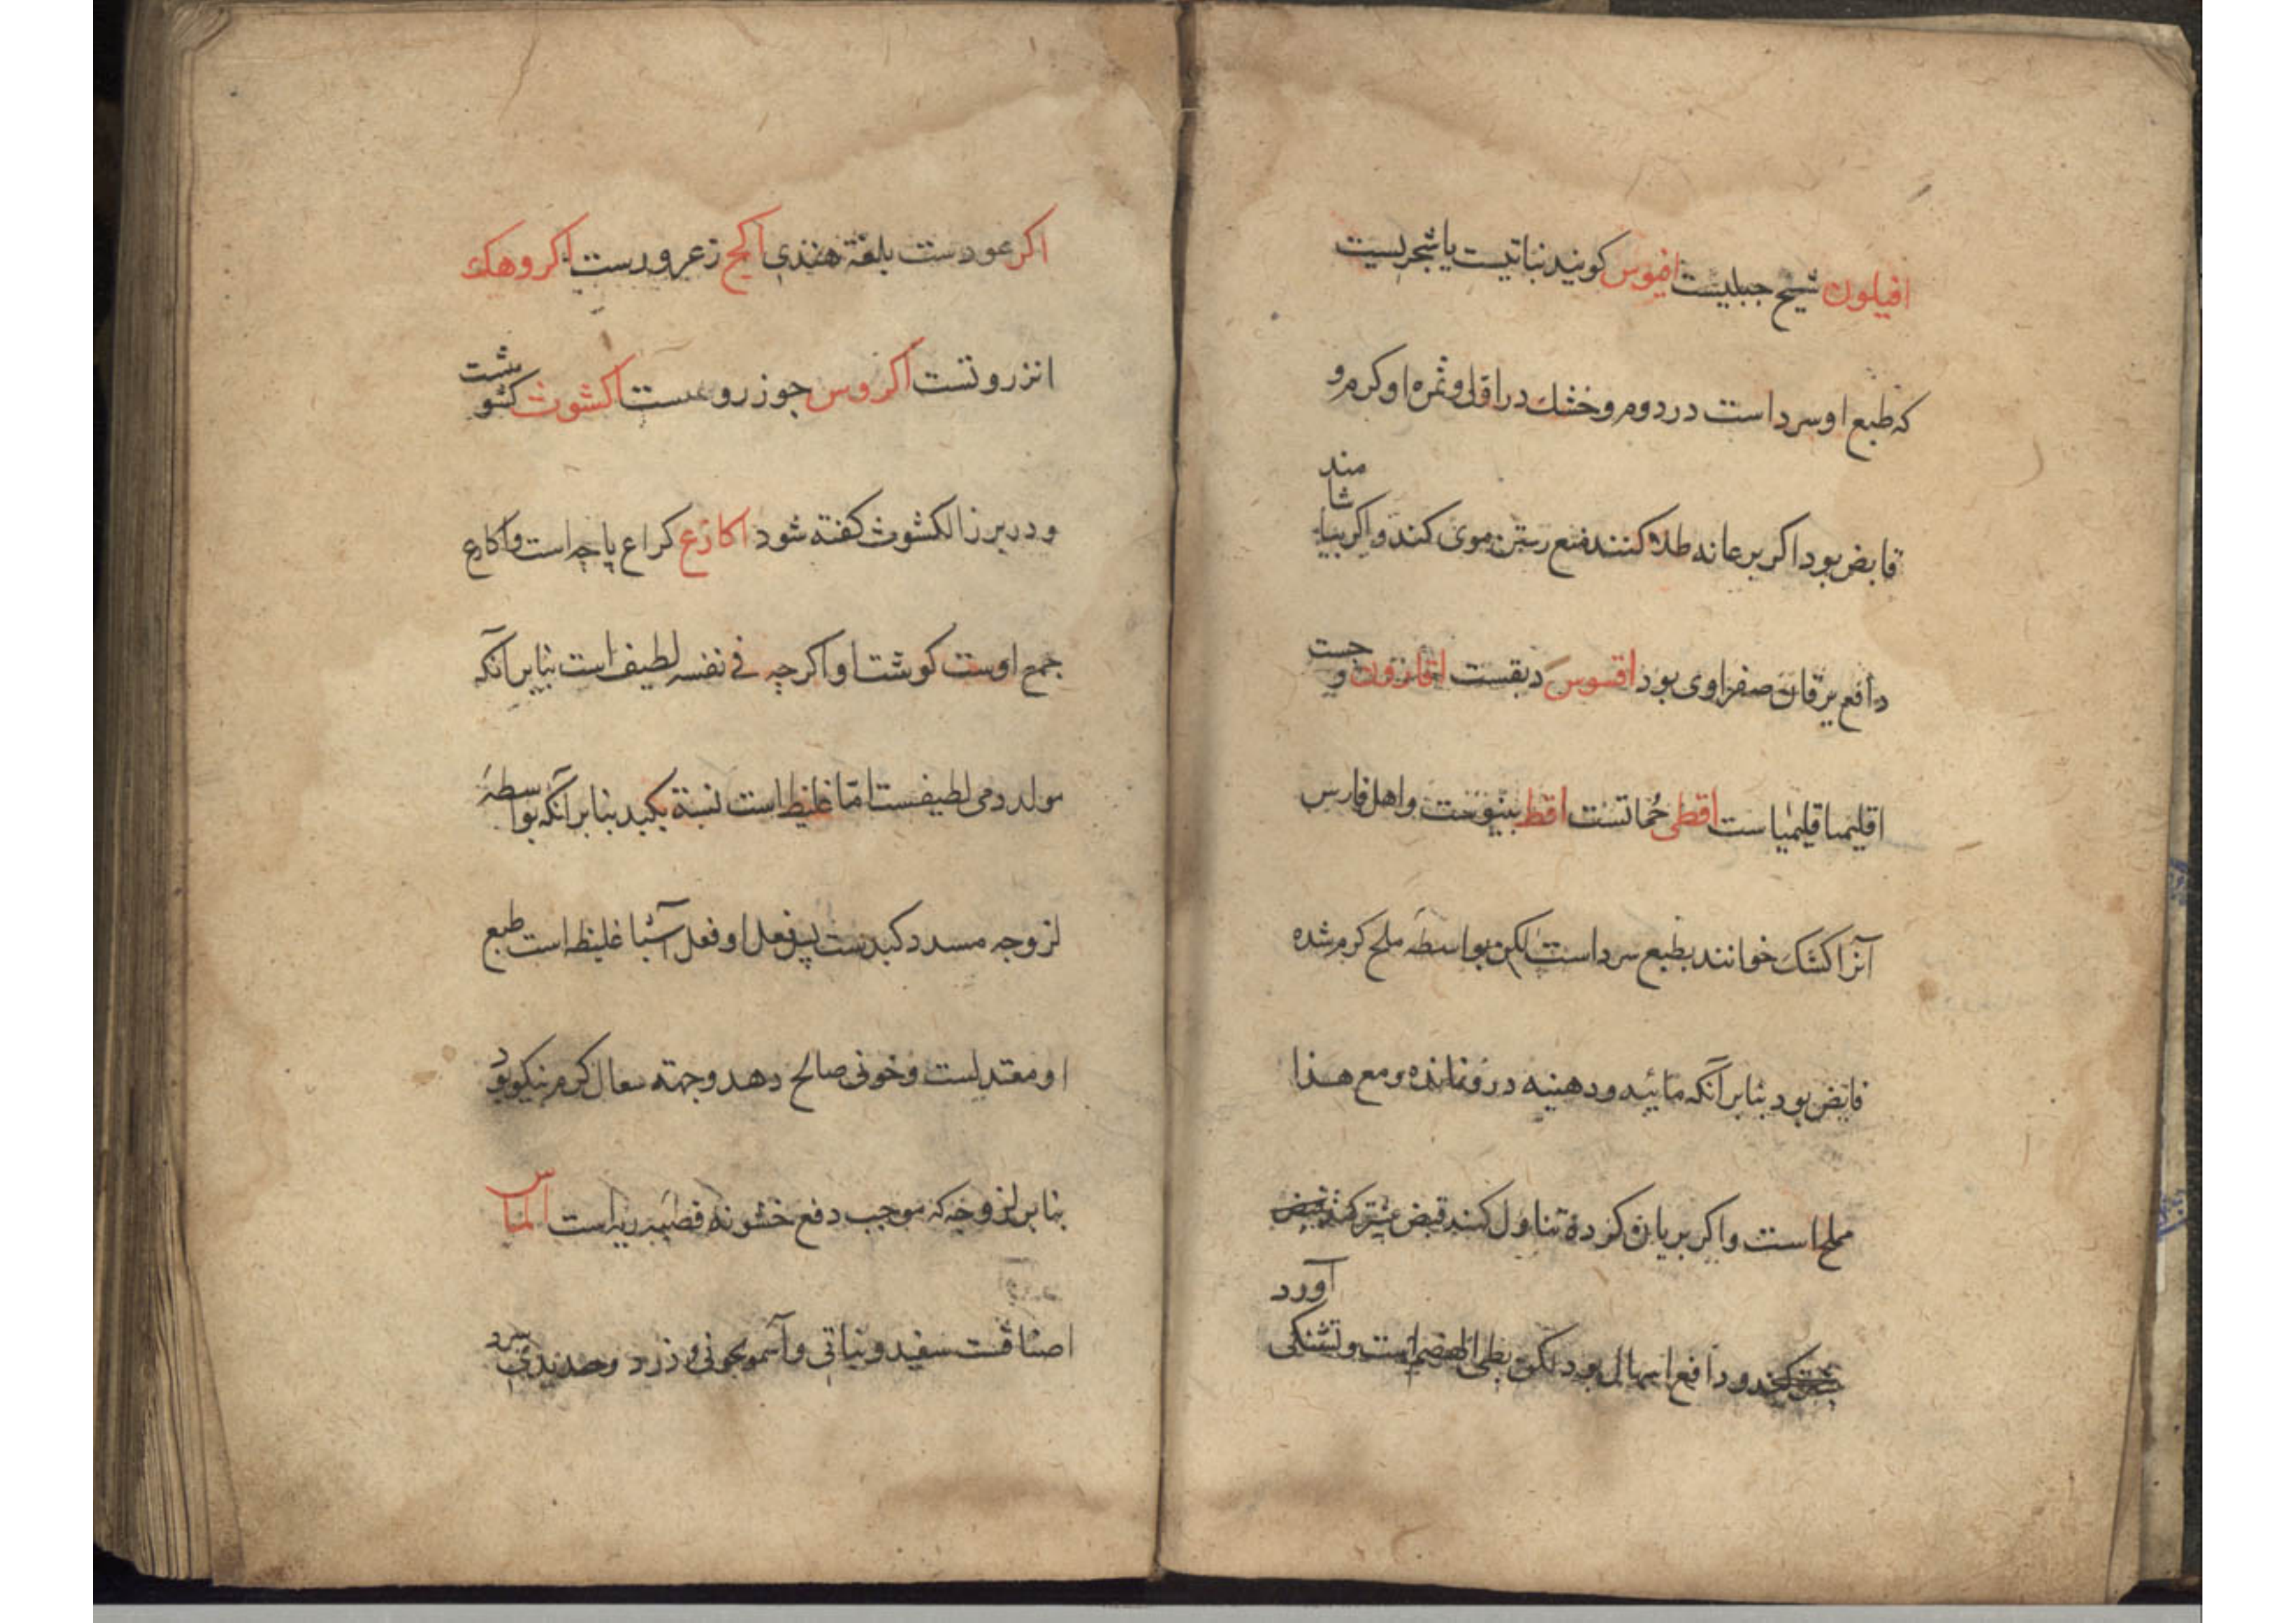 افیلون شیح جبلیست افیوس کویند نباتیست یا شجریست
که طبع او سرد است در دوم و خشك در اوّل و ثمره او کرم و
قابض بود اکر بر عانه طلا کنند منع رستن موی کند و اکر بیاشامند
دافع یرقان صفراوی بود اقسوس دبقست اقارون وجست
اقلیمیا قلیمیا است اقطی خُماتست اقط بینوست و اهل فارس
آنرا کشک خوانند بطبع سرد است لکن بواسطه ملح کرم شده
قابض بود بنابر آنکه مائیه و دهنیه درو نمانده و مع هذا
مملح است و اکر بریان کرده تناول کنند قبض بیشتر کند
و دافع اسهال بود لکن بطی الهضم است و تشنکی آورد
اکر عودست بلغة هندی اکج زعرورست اکروهك
انزروتست اکروس جوز رومیست اکشوث کشوشت
و در بزر الکشوث کفته شود اکارع کراع پاچه است و اکارع
جمع اوست کوشت او اکرچه فی نفسه لطیف است بنابر آنکه
مولد دمی لطیفست امّا غلیظ است نسبة بکبد بنابر آنکه بواسطهٔ
لزوجه مسدد کبدست پس فعل او فعل آشیا غلیظ است طبع
او معتدلست و خونی صالح دهد و جهته سعال کرم نیکو بود
بنابر لزوجه که موجب دفع خشونه قصبه ریه است الماس
اصنافست سفید و نباتی و آسمونجونی و زرد و حدیدی سرد